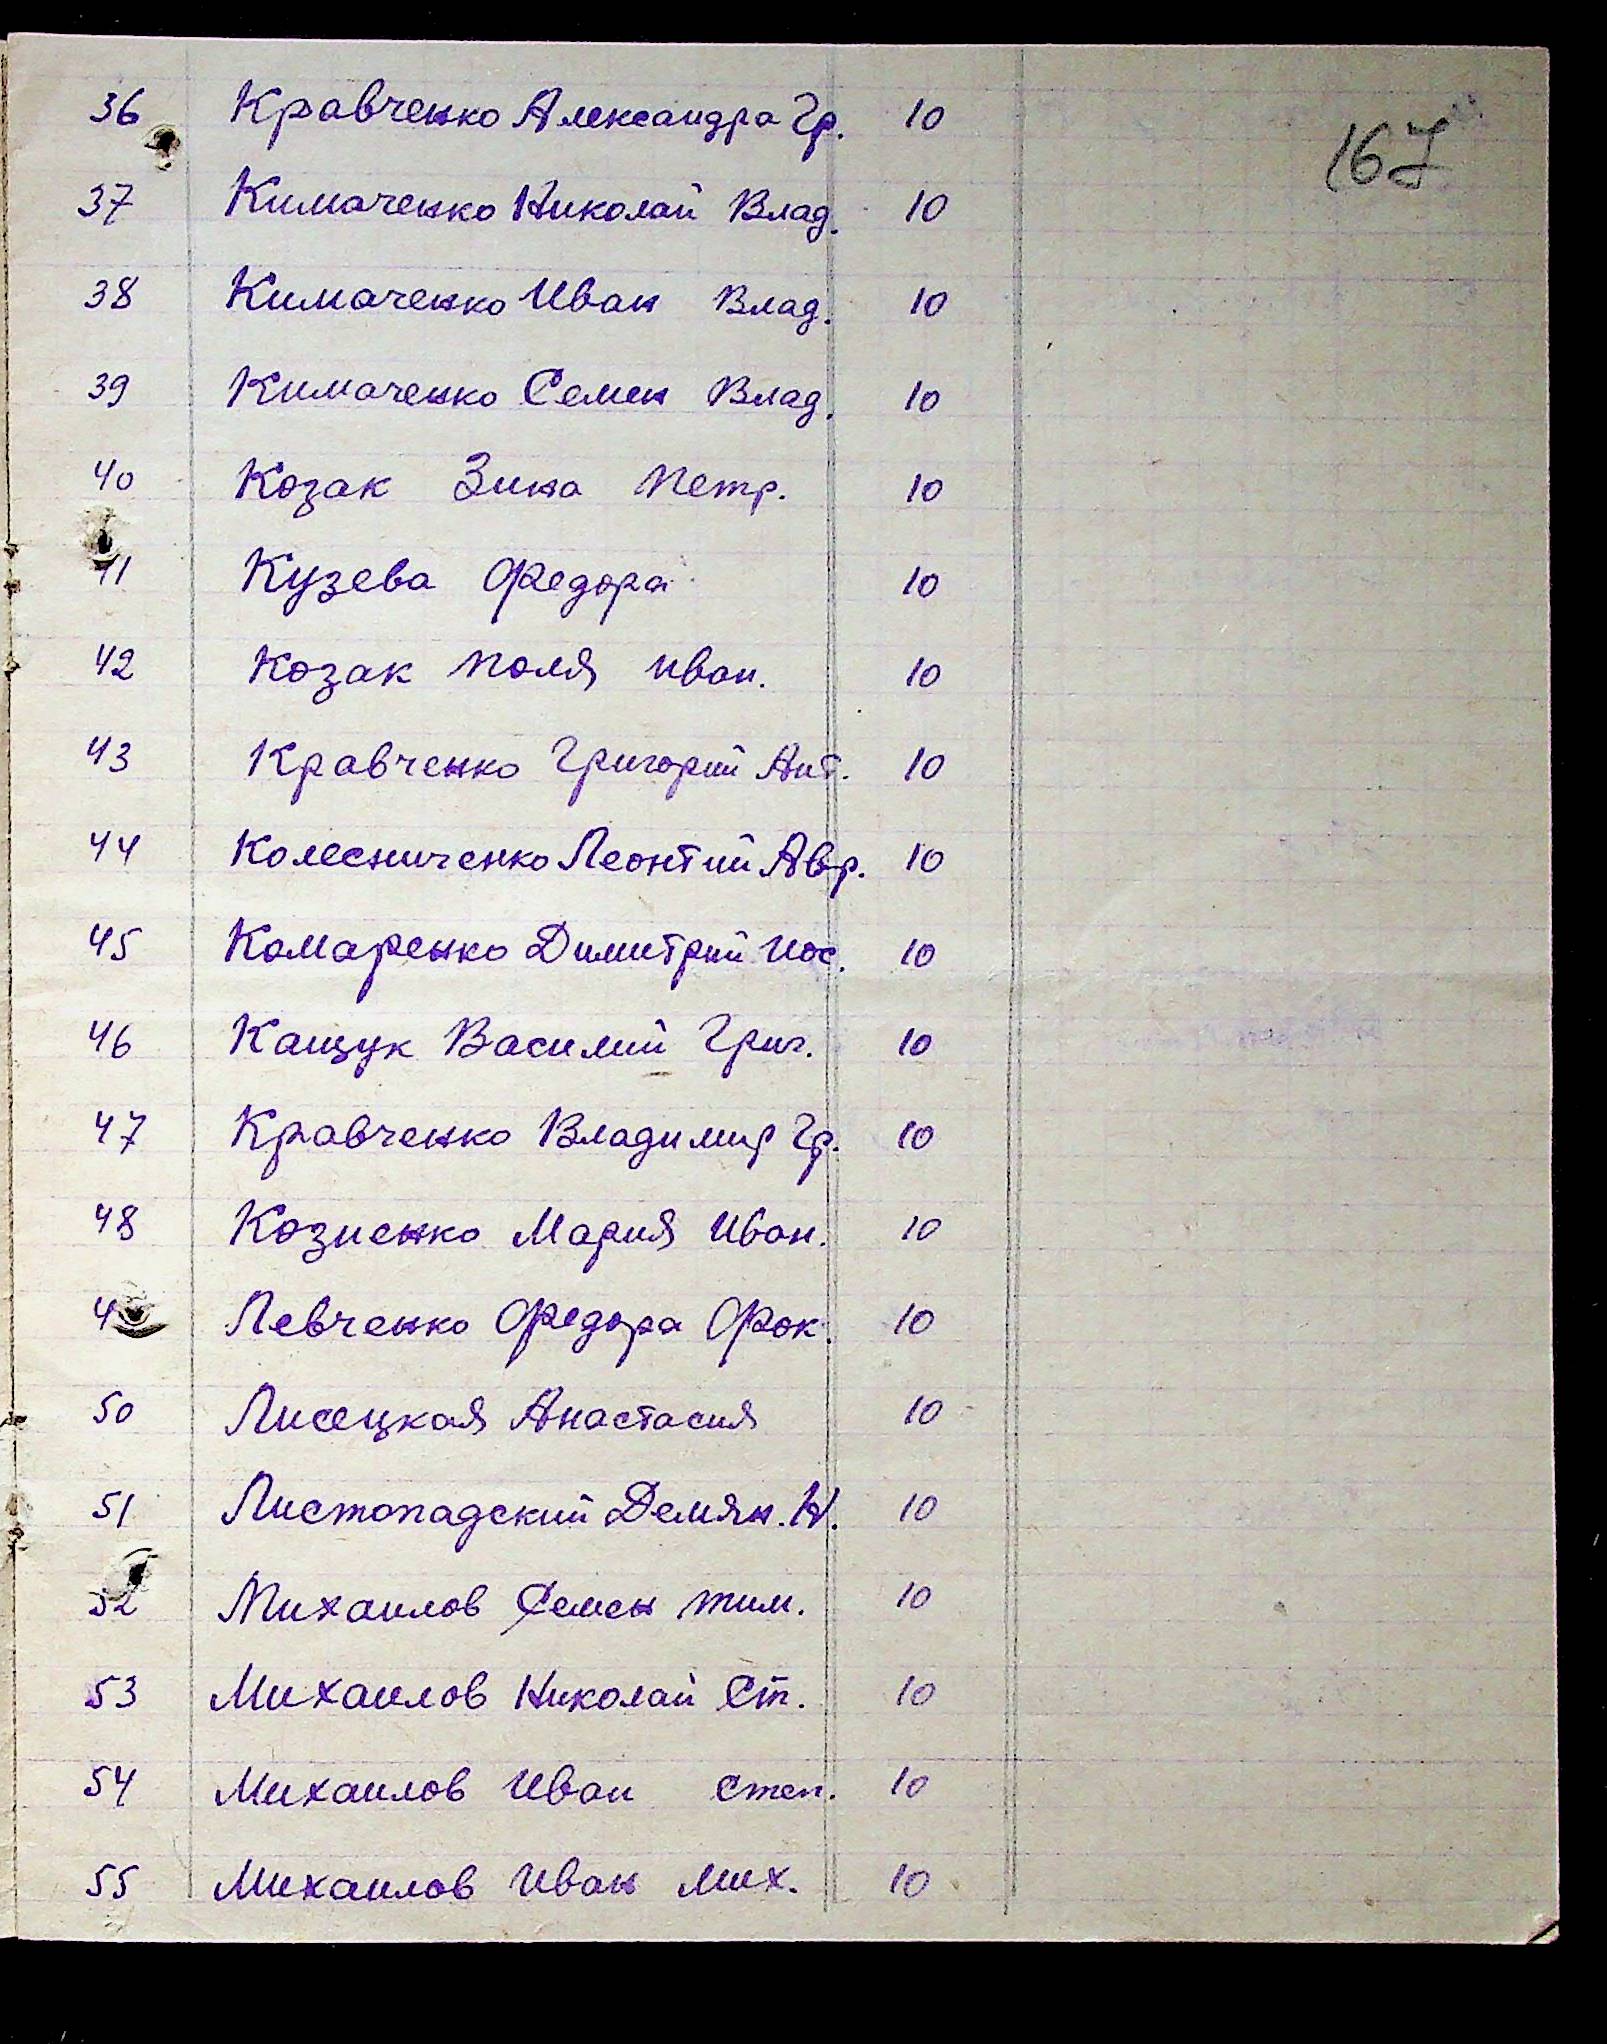 167
36 Кравченко Александра Гр. 10
37 Кимаченко Николай Влад. 10
38 Кимаченко Иван Влад. 10
39 Кимаченко Семен Влад. 10
40 Козак Зина Петр. 10
41 Кузева Федора 10
42 Козак Поля Иван. 10
43 Кравченко Григорий Ант. 10
44 Колесниченко Леонтий Авр. 10
45 Комаренко Димитрий Иос. 10
46 Кащук Василий Григ. 10
47 Кравченко Владимир Гр. 10
48 Козиенко Мария Иван. 10
4 Левченко Федора Фок. 10
50 Лисецкая Анастасия 10
51 Листопадский Демян. Н. 10
52 Михаилов Семен Тим. 10
53 Михаилов Николай Ст. 10
54 Михаилов Иван Степ. 10
55 Михаилов Иван Мих. 10